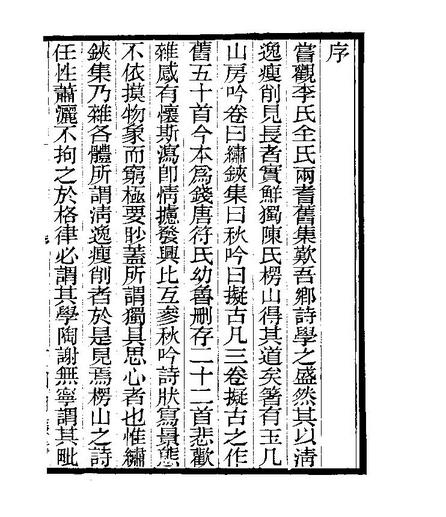 序
嘗觀李氏全氏兩耆舊集歎吾鄉詩學之盛然其以淸
逸瘦削見長者實鮮獨陳氏楞山得其道矣箸有玉几
山房吟卷曰繡鋏集曰秋吟曰擬古凡三卷擬古之作
舊五十首今本爲錢唐符氏幼魯刪存二十二首悲歡
雜感有懷斯瀉卽情攄發興比互參秋吟詩狀寫景態
不依摸物象而窮極要眇蓋所謂獨具思心者也惟繡
鋏集乃雜各體所謂淸逸瘦削者於是見焉楞山之詩
任性蕭灑不拘之於格律必謂其學陶謝無寧謂其毗